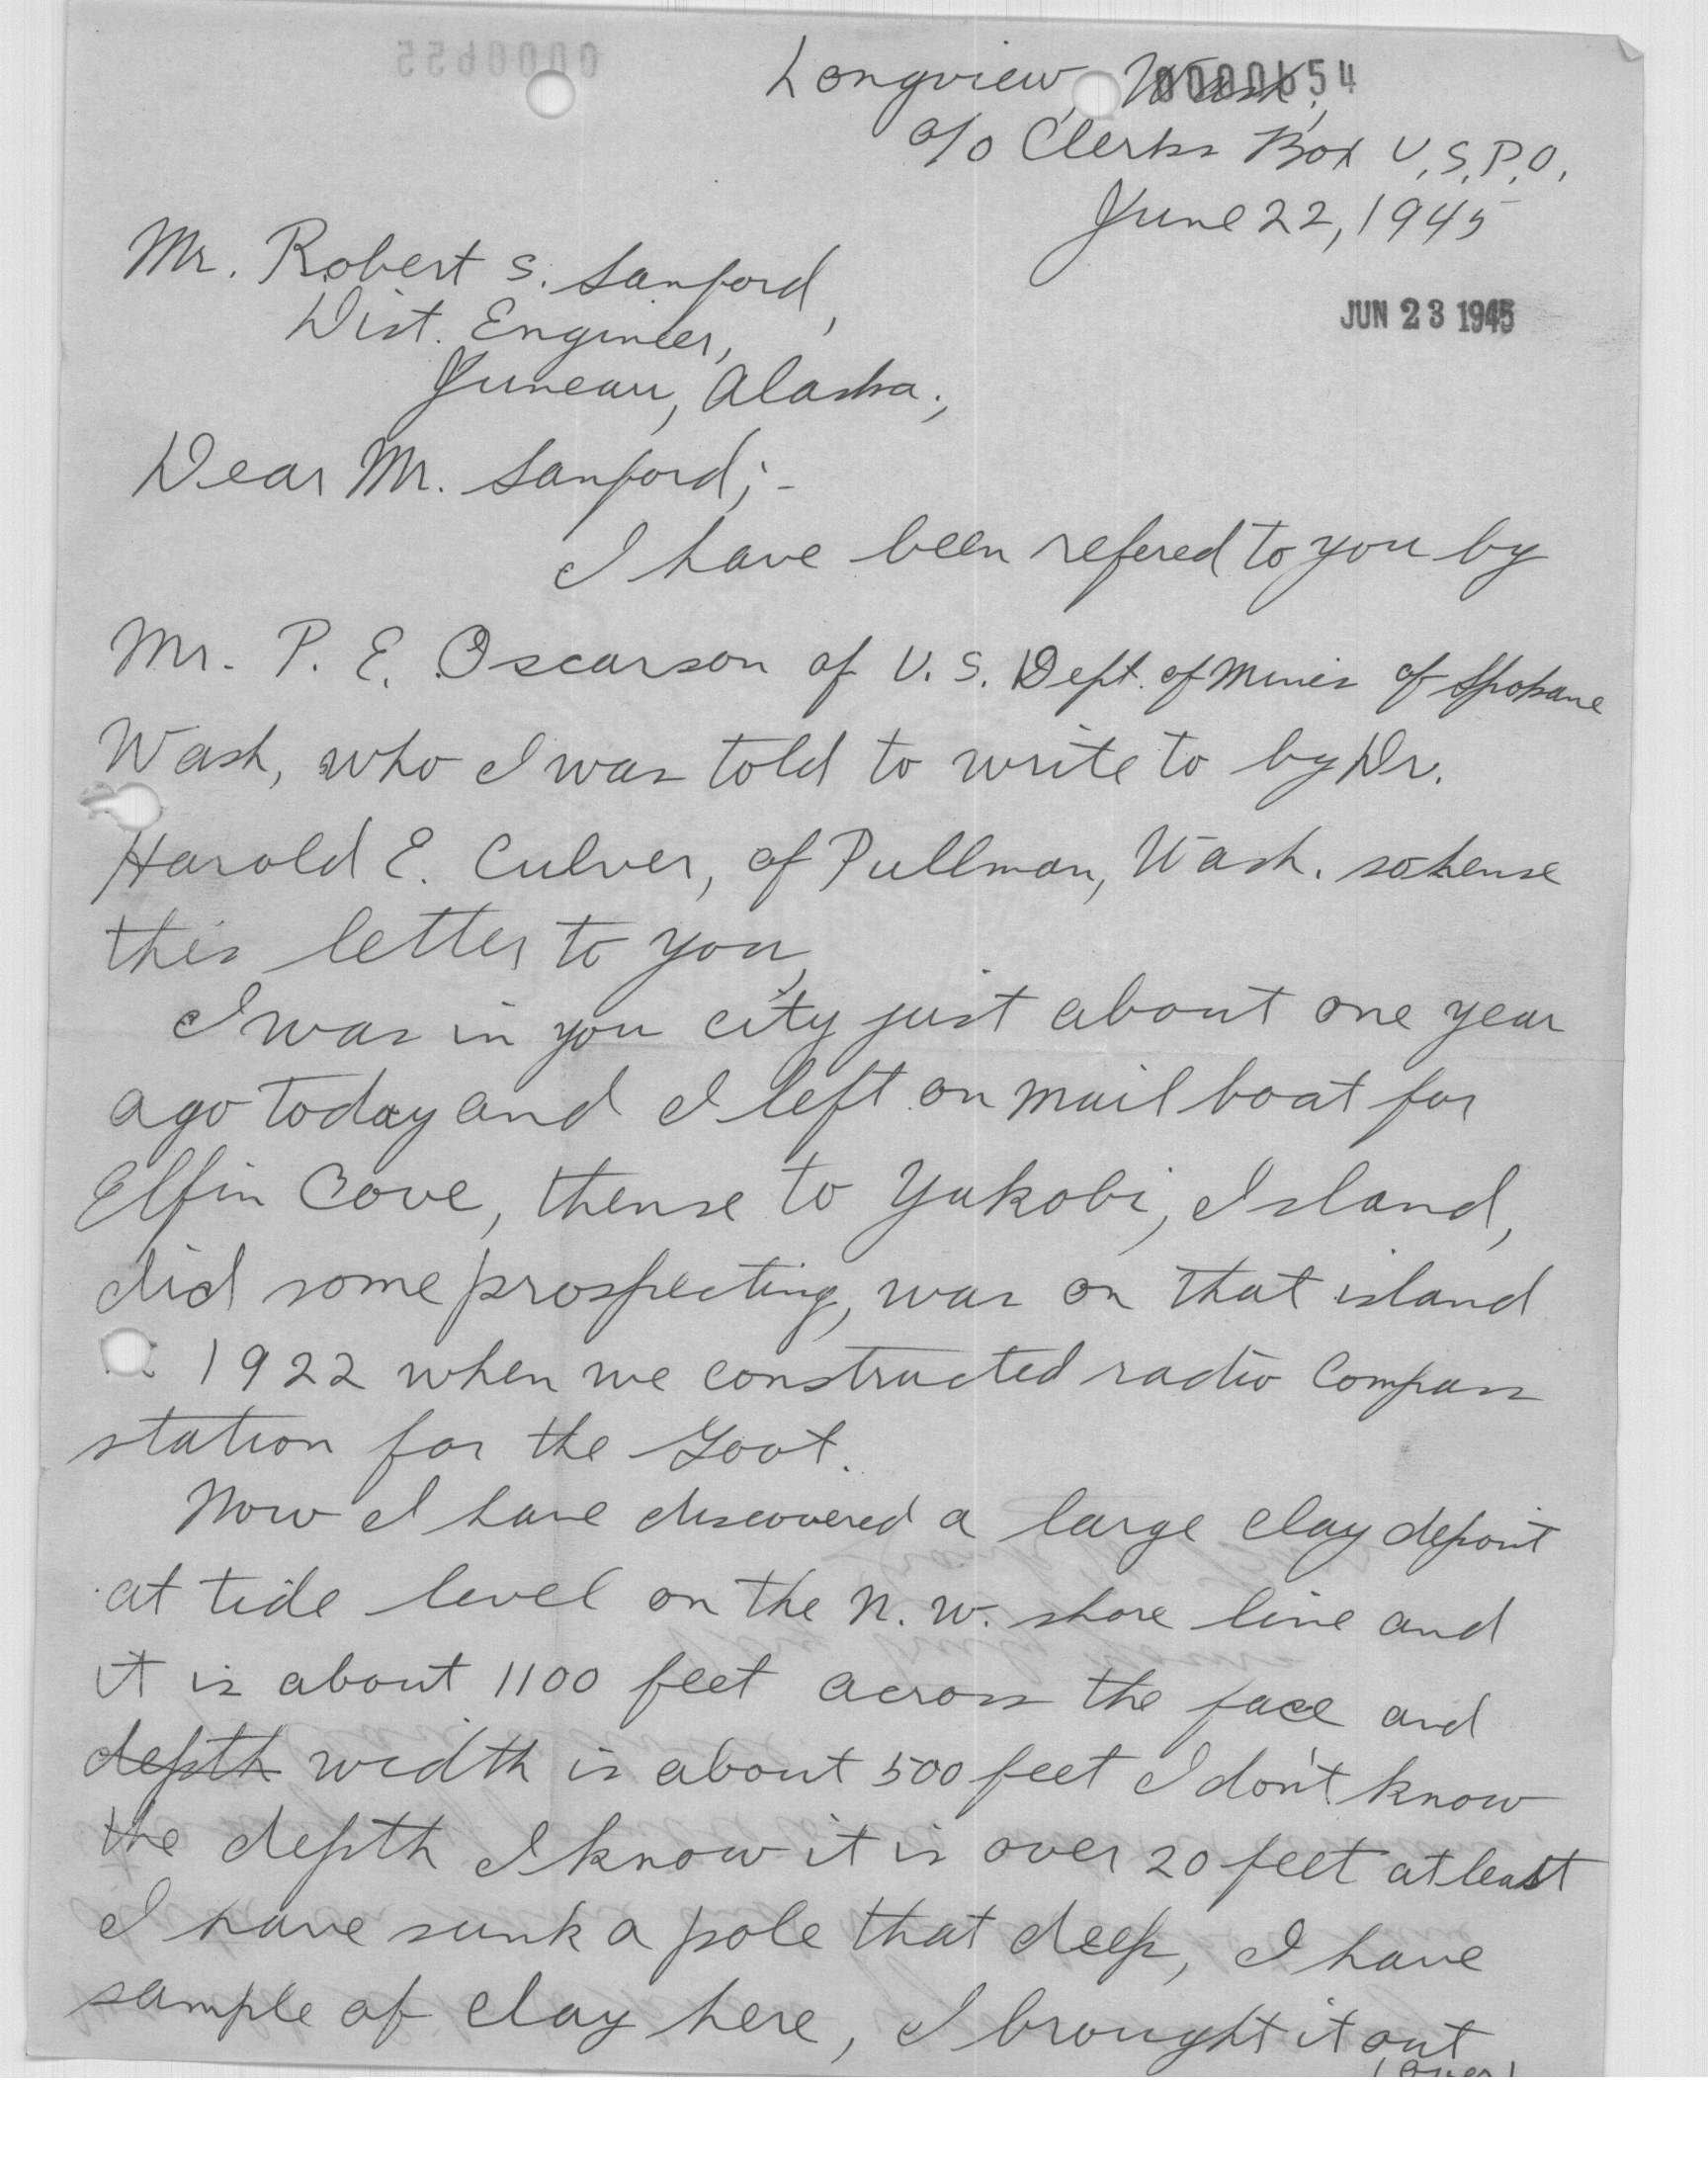 0000655
0000654
Longview, Wash.,
c/o Clerks Box U.S.P.O.,
June 22, 1945
JUN 23 1945
Mr. Robert S. Sanford,
Dist. Engineer,
Juneau, Alaska.,
Dear Mr. Sanford;-
I have been refered to you by
Mr. P. E. Oscarson of U. S. Dept. of Mines of Spokane
Wash, who I was told to write to by Dr.
Harold E. Culver, of Pullman, Wash. so hense
this letter to you,
I was in you city just about one year
ago today and I left on mail boat for
Elfin Cove, thense to Yakobi, Island,
did some prospecting, was on that island
1922 when we constructed radio Compass
station for the Govt.
Now I have discovered a large clay deposit
at tide level on the N. W. shore line and
it is about 1100 feet across the face and
depth width is about 500 feet I don't know
the depth I know it is over 20 feet at least
I have sunk a pole that deep, I have
sample of clay here, I brought it out
(over)